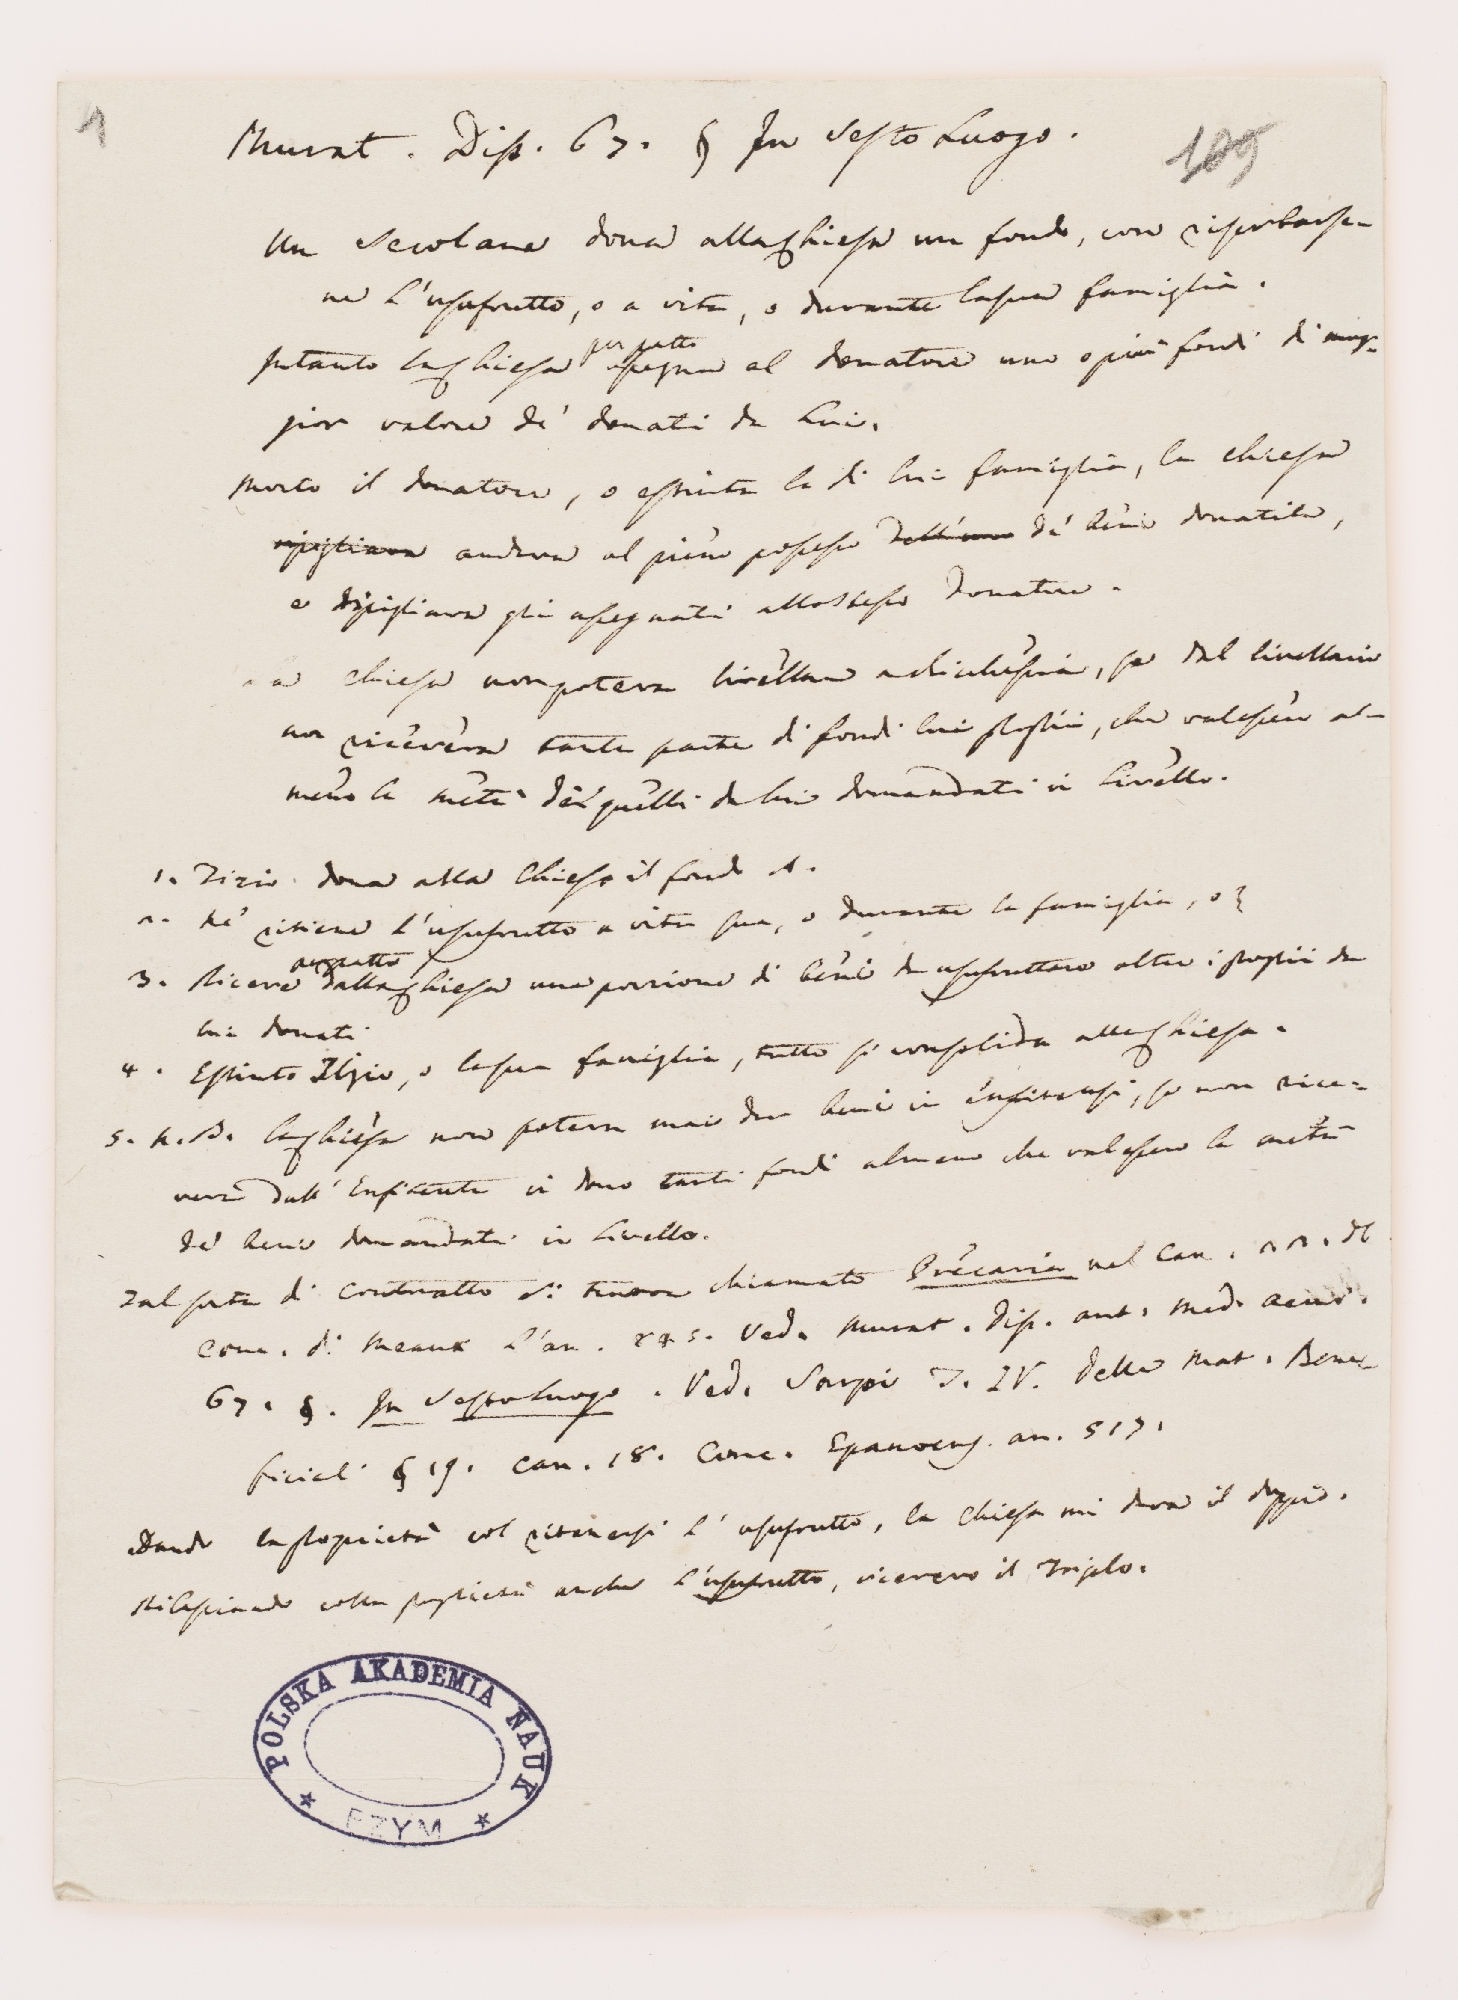 1
109
Murat. Diss. 67. § In sesto luogo.
Un secolare dona alla Chiesa un fondo, con riserbarse-
ne l'usufrutto, o a vita, o durante la sua famiglia.
Intanto la Chiesa per patto assegna al donatore uno o più fondi di mag-
gior valore de' donati da lui.
Morto il donatore, o estinta la di lui famiglia, la chiesa
ripigliava andava al pieno possesso dell'uno de' beni donatile,
e ripigliava gli assegnati allo stesso donatore.
La chiesa non poteva livellare a chichesia, se dal livellario
non riceveva tanta parte di fondi suoi proprii, che valessero al-
meno la metà di quelli da lui domandati in livello.
1. Tizio dona alla Chiesa il fondo A.
2. Ne ritiene l'usufrutto a vita sua, o durante la famiglia, o
3. Riceve per patto dalla Chiesa una porzione di beni da usufruttare oltre i proprii da
lui donati
4. Estinto Tizio, o la sua famiglia, tutto si consolida alla Chiesa.
5. N.B. la Chiesa non poteva mai dar beni in enfiteusi, se non rice-
vea dall'Enfiteuta in dono tanti fondi almeno che valessero la metà
de' beni domandati in livello.
Tal sorta di contratto si trova chiamato Precaria nel Can. 22. del
Conc. di Meaux l'an. 845. Ved. Murat. Diss. ant. Med. Aevi.
67. §. In sesto luogo. Ved. Sarpi T. IV. delle Mat. Bene-
ficiali § 19. can. 18. Conc. Epaonens. an. 517.
Dando la proprietà col ritenersi l'usufrutto, la Chiesa mi dava il doppio.
Rilasciando colla proprietà anche l'usufrutto, ricevevo il triplo.
POLSKA AKADEMIA NAUK
RZYM